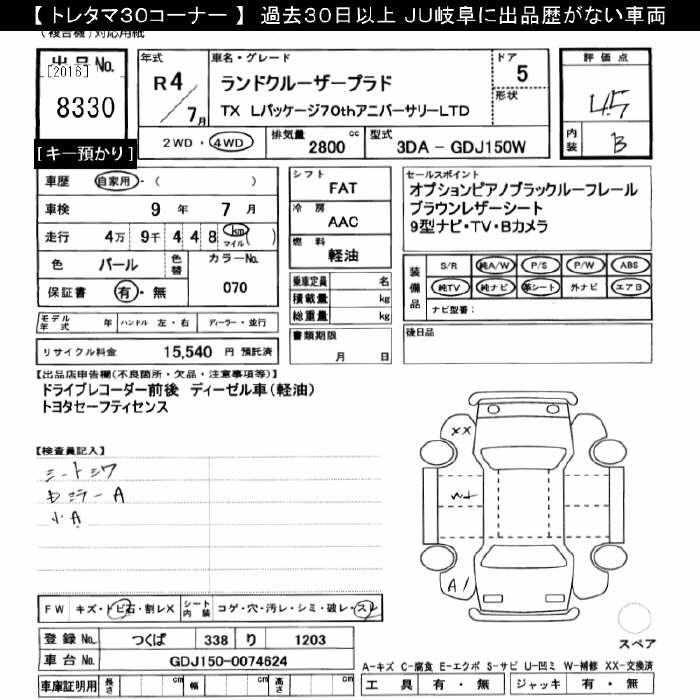 【 トレタマ30コーナー 】 過去30日以上 JU岐阜に出品歴がない車両
(複合機)対応用紙
出品No.
[2016]
8330
[キー預かり]
年式
R 4 / 7月
車名・グレード
ランドクルーザープラド
TX Lパッケージ70thアニバーサリーLTD
ドア
5
形状
評価点
4.5
内装
B
2WD・4WD
排気量 cc
2800
型式
3DA - GDJ150W
車歴 自家用・( )
車検 9 年 7 月
走行 4万 9千 4 4 8 km マイル ( )
色 パール
色替
カラーNo.
070
保証書 有・無
シフト
FAT
冷房
AAC
燃料
軽油
乗車定員 名
積載量 kg
総重量 kg
書類期限
月 日
セールスポイント
オプションピアノブラックルーフレール
ブラウンレザーシート
9型ナビ・TV・Bカメラ
装備品
S/R 純A/W P/S P/W ABS
純TV 純ナビ 革シート 外ナビ エアB
ナビ型番:
後日品
モデル年式 年 ハンドル 左・右 ディーラー・並行
リサイクル料金 15,540 円 預託済
【出品店申告欄(不良箇所・欠品・注意事項等)】
ドライブレコーダー前後 ディーゼル車(軽油)
トヨタセーフティセンス
【検査員記入】
シートシワ
セミラーA
小A
XX
A1
FW キズ・トビ石・割レX
シート内装 コゲ・穴・汚レ・シミ・破レ・スレ
登録No. つくば 338 り 1203
車台No. GDJ150-0074624
車庫証明用 長さ cm 幅 cm 高さ cm
スペア
A-キズ C-腐食 E-エクボ S-サビ U-凹ミ W-補修 XX-交換済
工具 有・無 ジャッキ 有・無